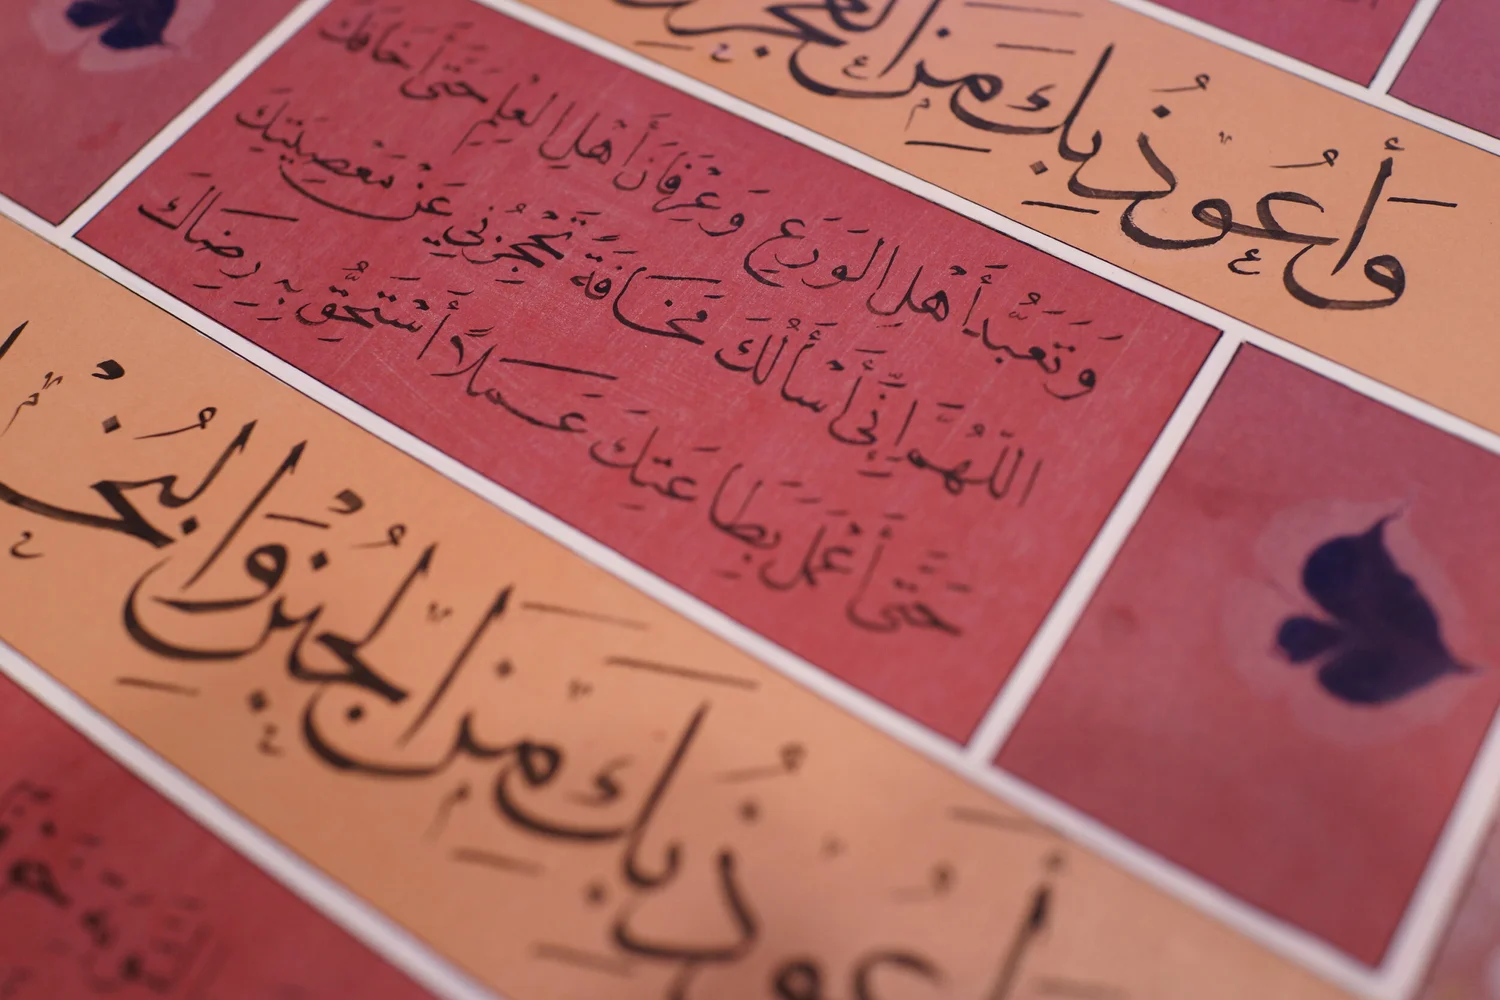 وَأَعُوذُ بِكَ مِنَ الْعَجْزِ
وَتَعَبُّدَ أَهْلِ الْوَرَعِ وَعِرْفَانَ أَهْلِ الْعِلْمِ حَتَّى أَخَافَكَ
اللّٰهُمَّ إِنِّي أَسْأَلُكَ مَخَافَةً تَحْجُزُنِي عَنْ مَعْصِيَتِكَ
حَتَّى أَعْمَلَ بِطَاعَتِكَ عَمَلًا أَسْتَحِقُّ بِهِ رِضَاكَ
أَعُوذُ بِكَ مِنَ الْجُبْنِ وَالْبُخْ